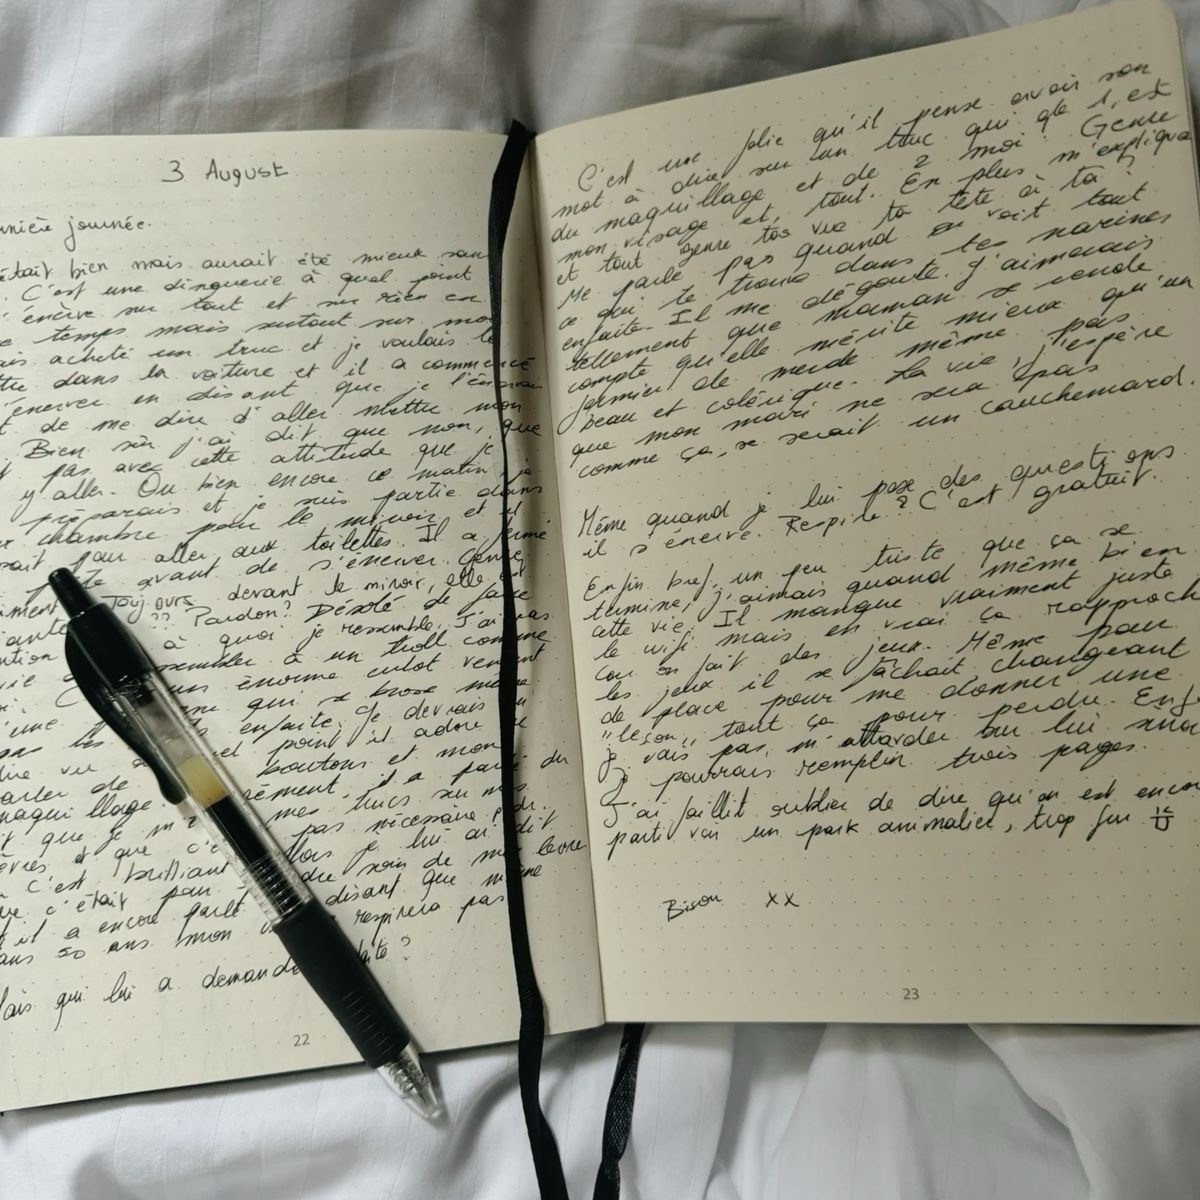 3 August
journée.
était bien mais aurait été mieux san
C'est une dinguerie à quel point
énèrve sur tout et sur rien en
temps mais surtout sur mo
ais acheté un truc et je voulais le
ttre dans la voiture et il a commencé
énerver en disant que je l'énervais
t de me dire d'aller mettre mon
Bien sûr j'ai dit que non, que
t pas avec cette attitude que je
y aller. Ou bien encore ce matin je
préparais et je suis partie dans
r chambre pour le miroir et il
sait pour aller aux toilettes. Il a fermé
te avant de s'énerver. Genre,
Toujours devant le miroir, elle est
?? Pardon? Désolé de faire
ntion à quoi je ressemble. J'ai pas
vie sembler à un troll comme
un énorme culot venant
'une qui se brosse même
enfaite. Je devrais
dire vu el point il adore
arler de boutons et mon
maquillage. il a parlé du
it que je m' mes trucs sur mes
èvres et que c'e pas nécessaire
C'est brilliant lors je lui ai dit
ue c'était pour dre soin de mes lèvre
t il a encore parlé disant que même
ans 50 ans mon respirera pas
ais qui lui a demandé
22
C'est une folie qu'il pense avoir son
mot à dire sur un truc qui de 1, est
du maquillage et de 2 moi! Genre
mon visage et tout. En plus m'expliqua
et tout genre tas vue ta tête à toi?
Me parle pas quand on voit tout
ce qui te trouve dans tes narines
enfaite. Il me dégoute. J'aimerais
tellement que maman se rende
compte qu'elle mérite mieux qu'un
fermier de merde même pas
beau et colérique. La vie j'espère
que mon mari ne sera pas
comme ça, se serait un cauchemard.
Même quand je lui pose des questions
il s'énerve. Respire? C'est gratuit.
Enfin bref, un peu triste que ça se
termine, j'aimais quand même bien
cette vie. Il manque vraiment juste
le wifi mais en vrai ça rapproch
car on fait des jeux. Même pour
les jeux il se fâchait changeant
de place pour me donner une
"leçon" tout ça pour perdre. Enf
je vais pas m'attarder sur lui sino
je pourrais remplir trois pages.
J'ai faillit oublier de dire qu'on est encor
parti voir un park animalier, trop fun
Bisou xx
23